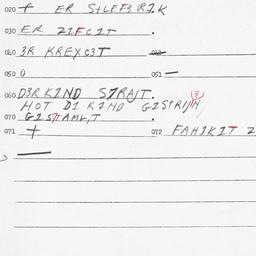 020 + ER STLEF3RIK
030 ER ZIFCIT .
040 3R KREXC3T 042
050 0 052 —
060 D3R KIND STRAJT.
HOT DI KIND GISTRIJN (3)
070 GISTAML,T .
071 + 072 FAHIKIT Z